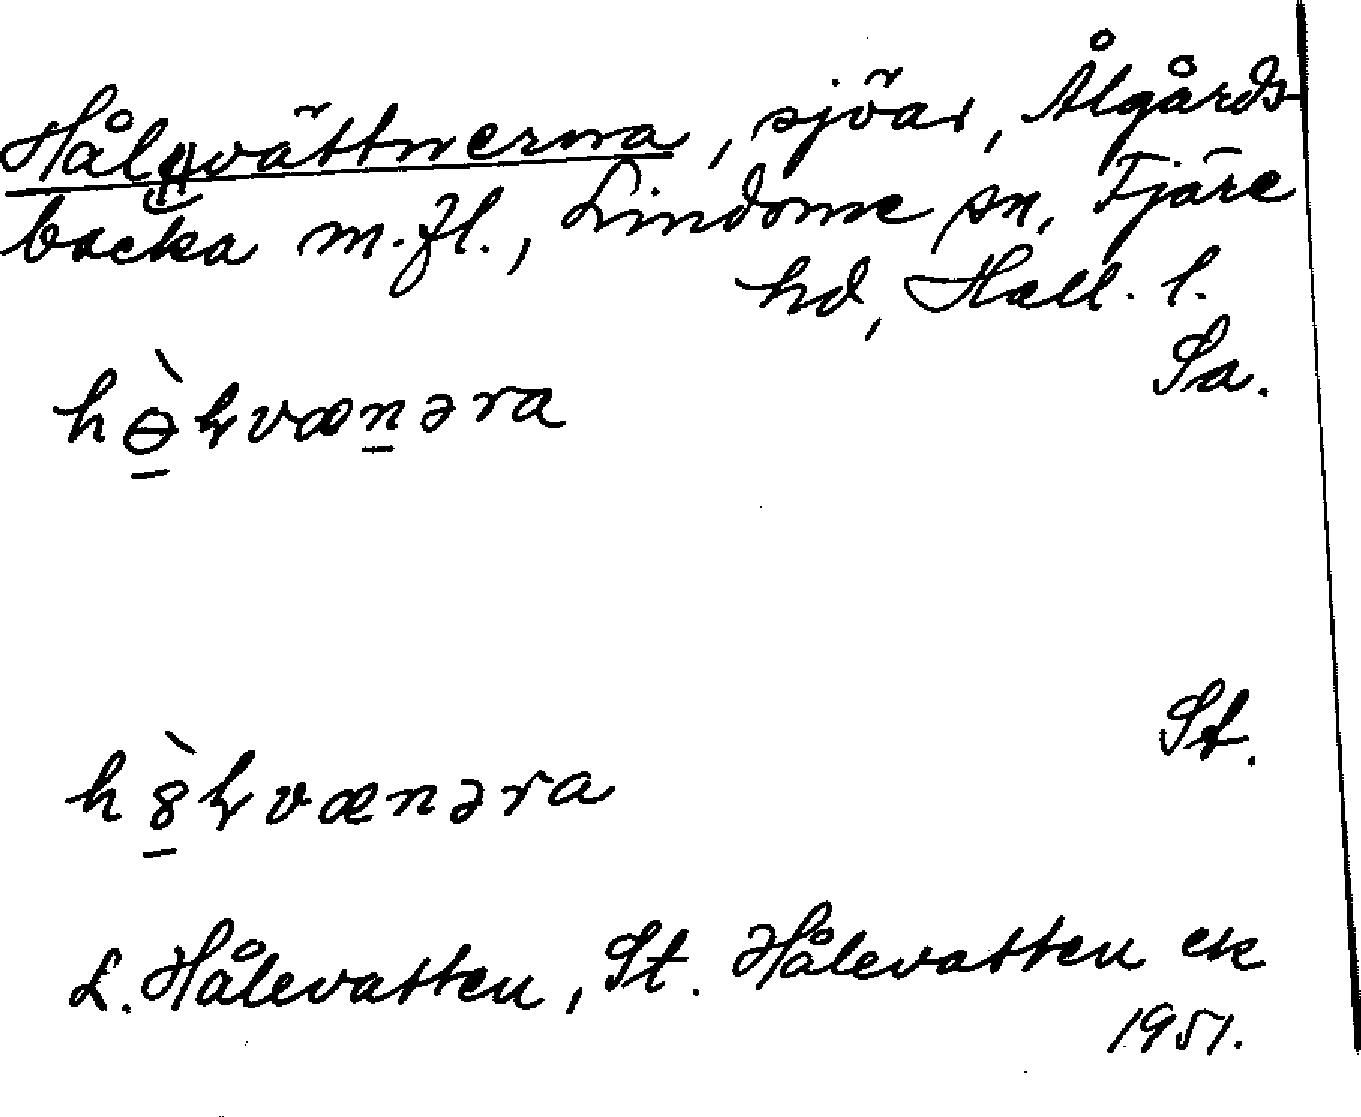 Hålvättnerna, sjöar, Ålgårds-
backa m.fl., Lindome sn, Fjäre
hd, Hall. l.
Sa.
hɵ̀ɫvænəra
St.
h8̀ɫvænəra
L. Hålevatten, St. Hålevatten ek
1951.